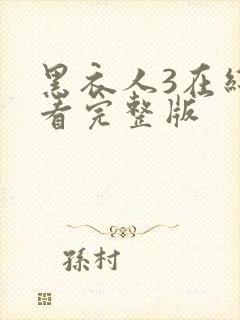 黑衣人3在線
看完整版
孫村